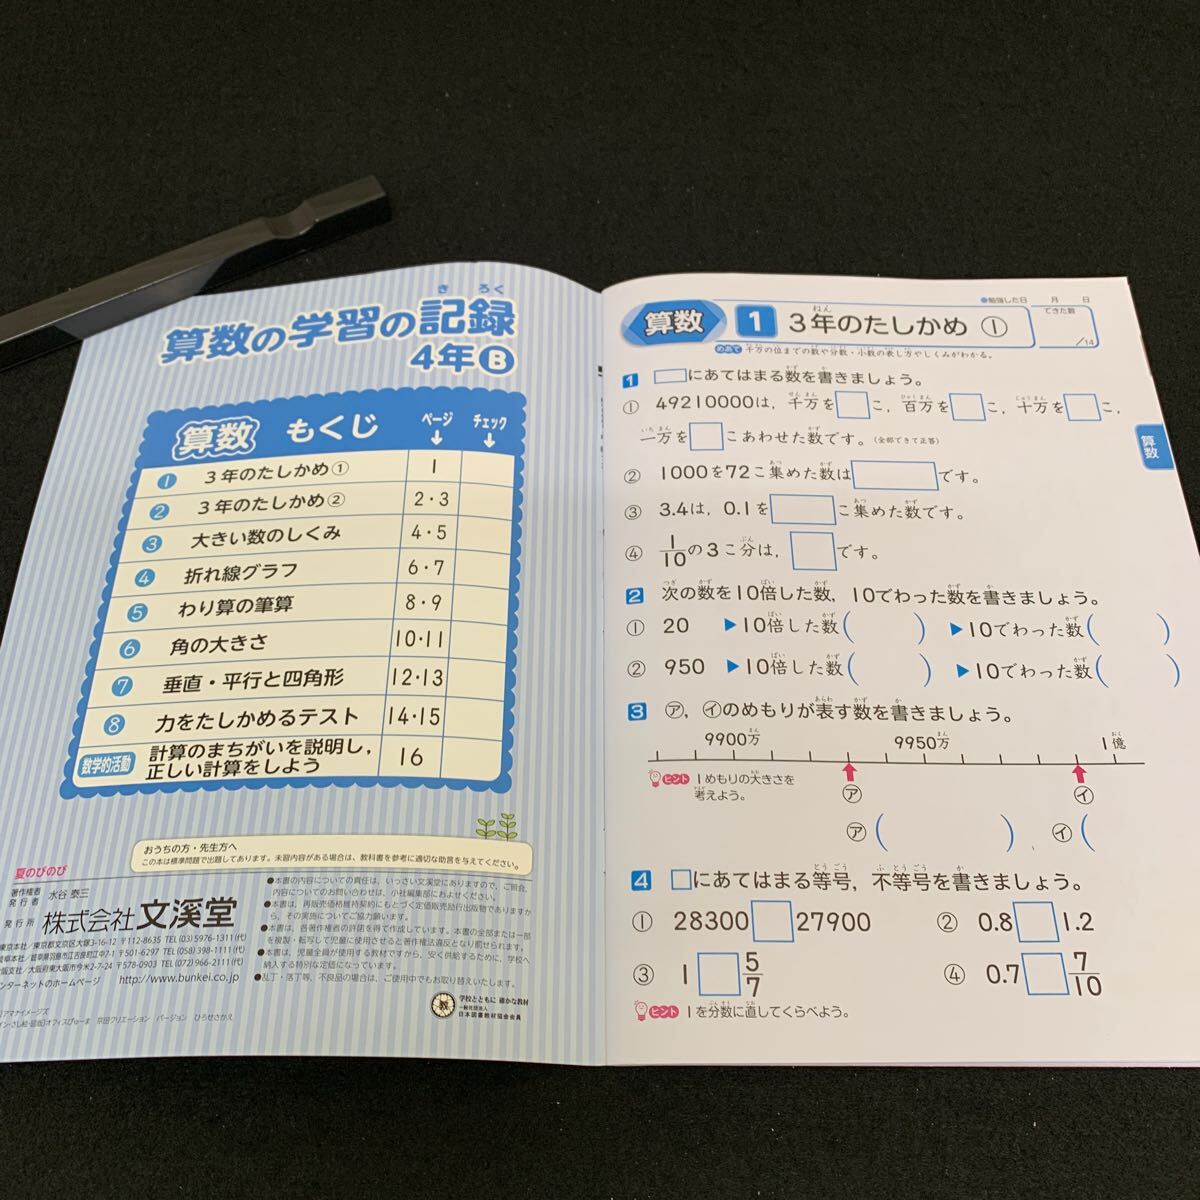 算数の学習の記録
きろく
4年B
算数 もくじ ページ チェック
1 3年のたしかめ① 1
2 3年のたしかめ② 2・3
3 大きい数のしくみ 4・5
4 折れ線グラフ 6・7
5 わり算の筆算 8・9
6 角の大きさ 10・11
7 垂直・平行と四角形 12・13
8 力をたしかめるテスト 14・15
数学的活動 計算のまちがいを説明し，
正しい計算をしよう 16
おうちの方・先生方へ
この本は標準問題で出題してあります。未習内容がある場合は、教科書を参考に適切な助言を与えてください。
夏のびのび
著作権者
発行者 水谷 泰三
発行所 株式会社 文溪堂
東京本社／東京都文京区大塚3-16-12 〒112-8635 TEL(03)5976-1311(代)
岐阜本社／岐阜県羽島市江吉良町江中7-1 〒501-6297 TEL(058)398-1111(代)
大阪支社／大阪府東大阪市今米2-7-24 〒578-0903 TEL(072)966-2111(代)
ンターネットのホームページ http://www.bunkei.co.jp
●本書の内容についての責任は、いっさい文溪堂にありますので、ご照会、
内容についてのお問い合わせは、小社編集部におよせください。
●本書は、再販売価格維持契約にもとづく定価販売励行出版物でありますか
ら、その実施についてご協力願います。
●本書は、各著作権者の許諾を得て作成しています。本書の全部または一部
を複製・転写して児童に使用させると著作権法違反となり罰せられます。
●本書は、児童全員が使用する教材ですから、安く供給するために、学校へ
納入する特別な定価になっています。
●乱丁・落丁等、不良品の場合は、ご使用中でもお取り替えいたします。
学校とともに 確かな教材
一般社団法人
日本図書教材協会会員
算数 1 3年のたしかめ ①
ねん
●勉強した日 月 日
できた数
/14
めあて 千万の位までの数や分数・小数の表し方やしくみがわかる。
1 □にあてはまる数を書きましょう。
① 49210000は，千万を□こ，百万を□こ，十万を□こ，
一万を□こあわせた数です。(全部できて正答)
② 1000を72こ集めた数は□です。
③ 3.4は，0.1を□こ集めた数です。
④ 1/10の3こ分は，□です。
2 次の数を10倍した数，10でわった数を書きましょう。
① 20 ▶10倍した数( ) ▶10でわった数( )
② 950 ▶10倍した数( ) ▶10でわった数( )
3 ㋐，㋑のめもりが表す数を書きましょう。
9900万 9950万 1億
ヒント 1めもりの大きさを
考えよう。
㋐ ㋑
㋐( ) ㋑(
4 □にあてはまる等号，不等号を書きましょう。
① 28300□27900 ② 0.8□1.2
③ 1□5/7 ④ 0.7□7/10
ヒント 1を分数に直してくらべよう。
算数